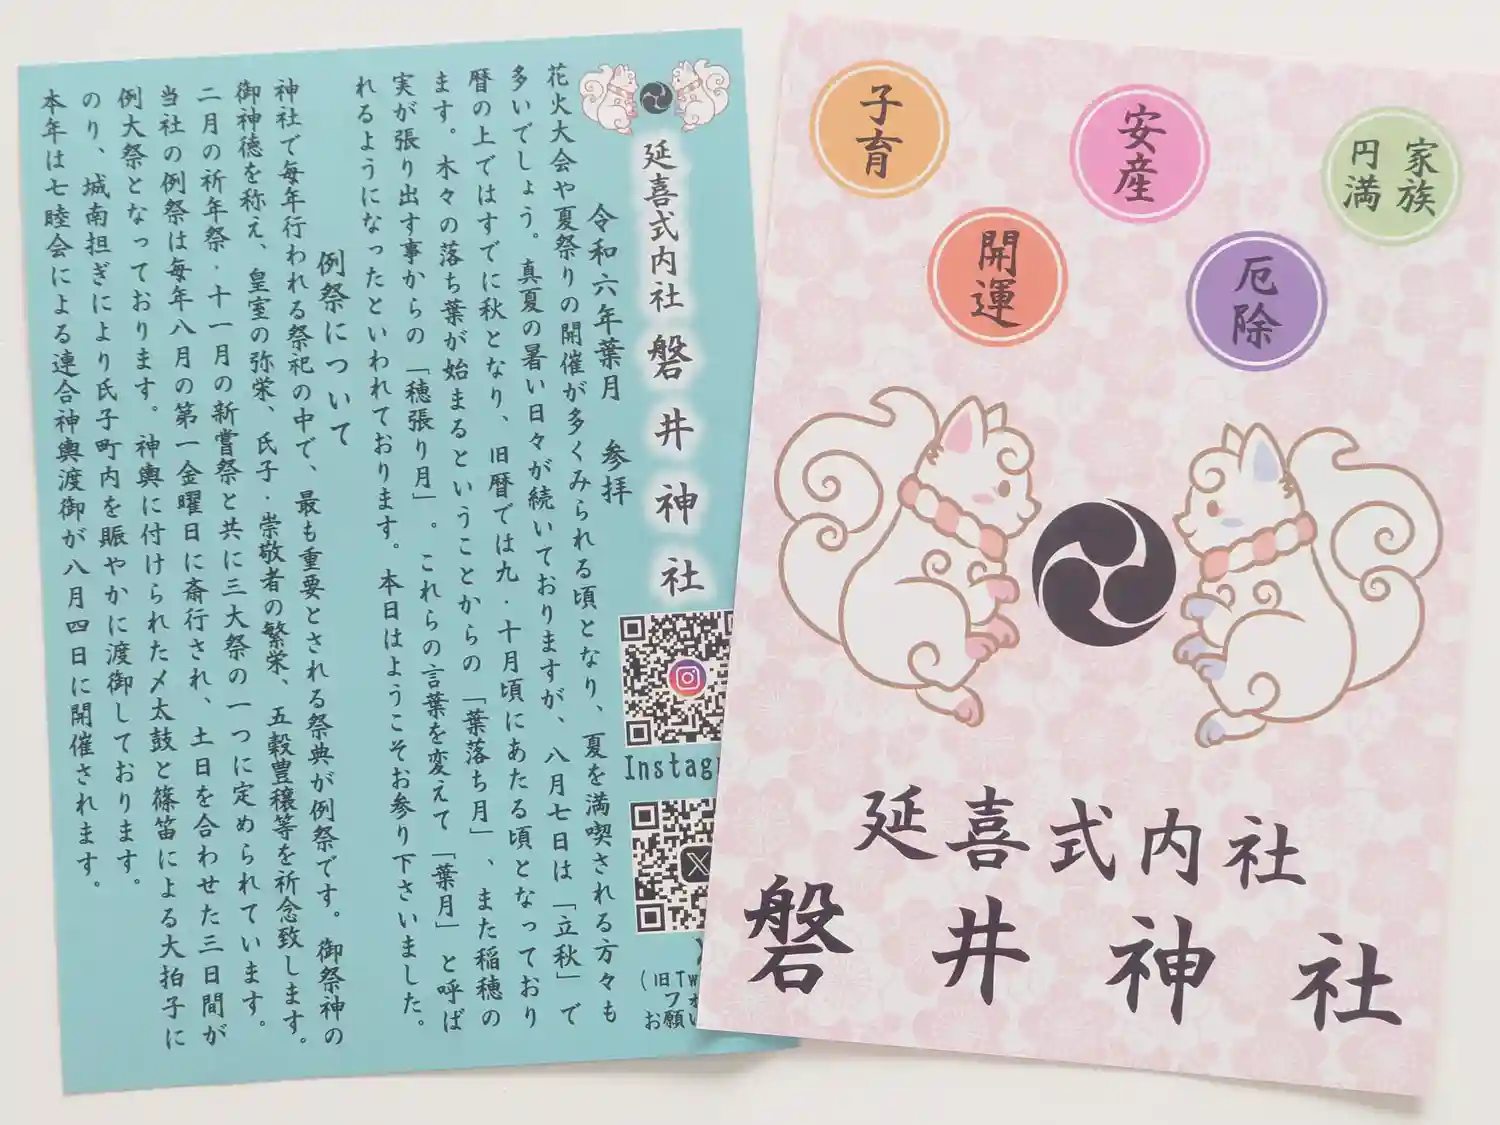 延喜式内社 磐井神社
令和六年葉月 参拝
花火大会や夏祭りの開催が多くみられる頃となり、夏を満喫される方々も
多いでしょう。真夏の暑い日々が続いておりますが、八月七日は「立秋」で
暦の上ではすでに秋となり、旧暦では九・十月頃にあたる頃となっており
ます。木々の落ち葉が始まるということからの「葉落ち月」、また稲穂の
実が張り出す事からの「穂張り月」。これらの言葉を変えて「葉月」と呼ば
れるようになったといわれております。本日はようこそお参り下さいました。
例祭について
神社で毎年行われる祭祀の中で、最も重要とされる祭典が例祭です。御祭神の
御神徳を称え、皇室の弥栄、氏子・崇敬者の繁栄、五穀豊穣等を祈念致します。
二月の祈年祭・十一月の新嘗祭と共に三大祭の一つに定められています。
当社の例祭は毎年八月の第一金曜日に斎行され、土日を合わせた三日間が
例大祭となっております。神輿に付けられた〆太鼓と篠笛による大拍子に
のり、城南担ぎにより氏子町内を賑やかに渡御しております。
本年は七睦会による連合神輿渡御が八月四日に開催されます。
Instag
(旧Tw
フォ
お願い
子育
安産
家族
円満
開運
厄除
延喜式内社
磐井神社